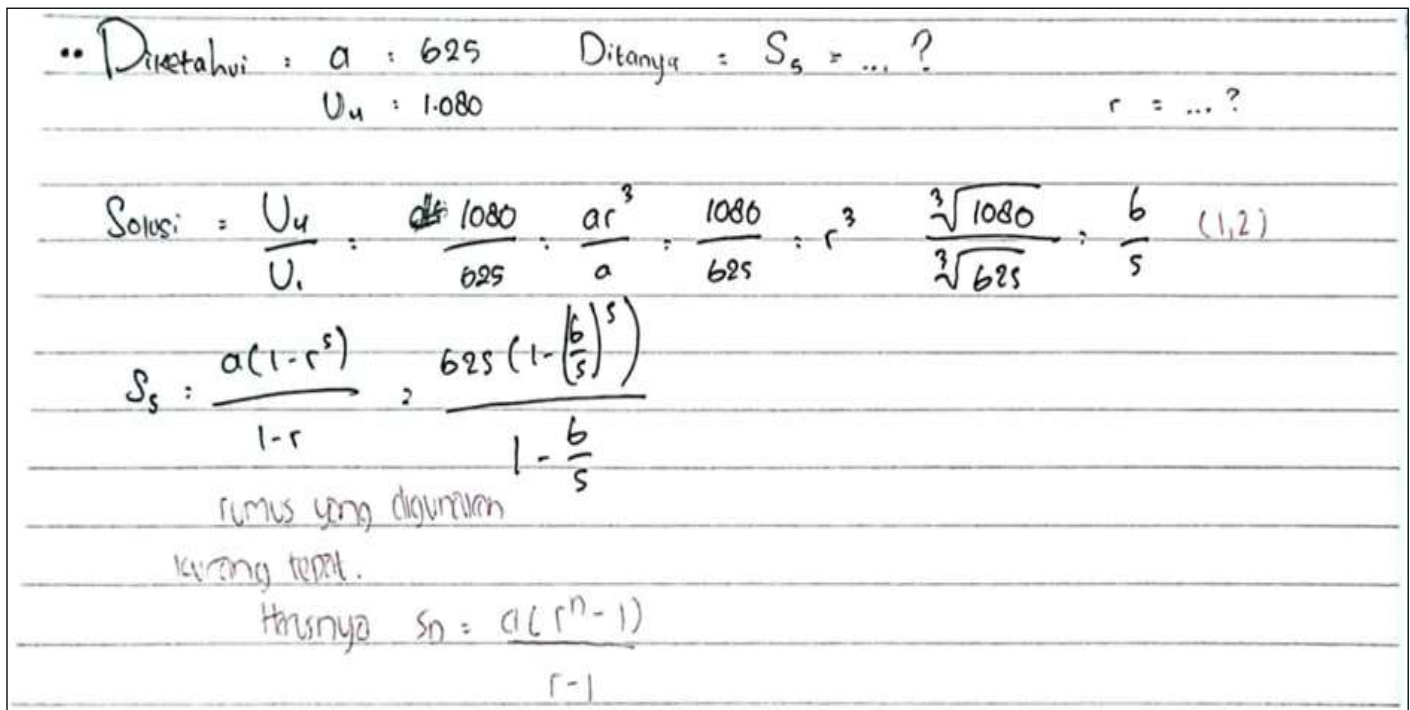 •• Diketahui : a : 625 Ditanya : S₅ = ... ?
U₄ : 1.080 r = ... ?
Solusi : U₄/U₁ : 1080/625 : ar³/a : 1080/625 : r³ ∛1080/∛625 : 6/5 (1,2)
S₅ : a(1-r⁵)/1-r = 625(1-(6/5)⁵)/1-6/5
rumus yang digunakan
kurang tepat.
Harusnya Sn = a(rⁿ-1)/r-1